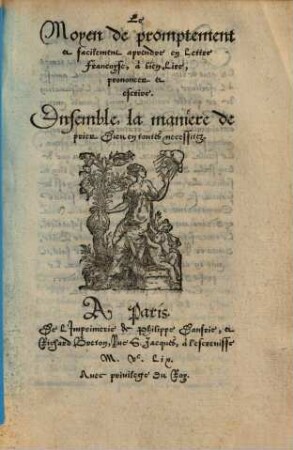 Le
Moyen de promptement
& facilement aprendre en Lettre
Françoyse, à bien Lire,
prononcer &
escrire.
Ensemble la maniere de
prier Dieu en toutes necessitez.
A Paris.
De l'Imprimerie de Philippe Danfrie, &
Richard Breton, Rue S. Jacques, à l'escrevisse
M. Vc. Lix.
Avec privilege du Roy.